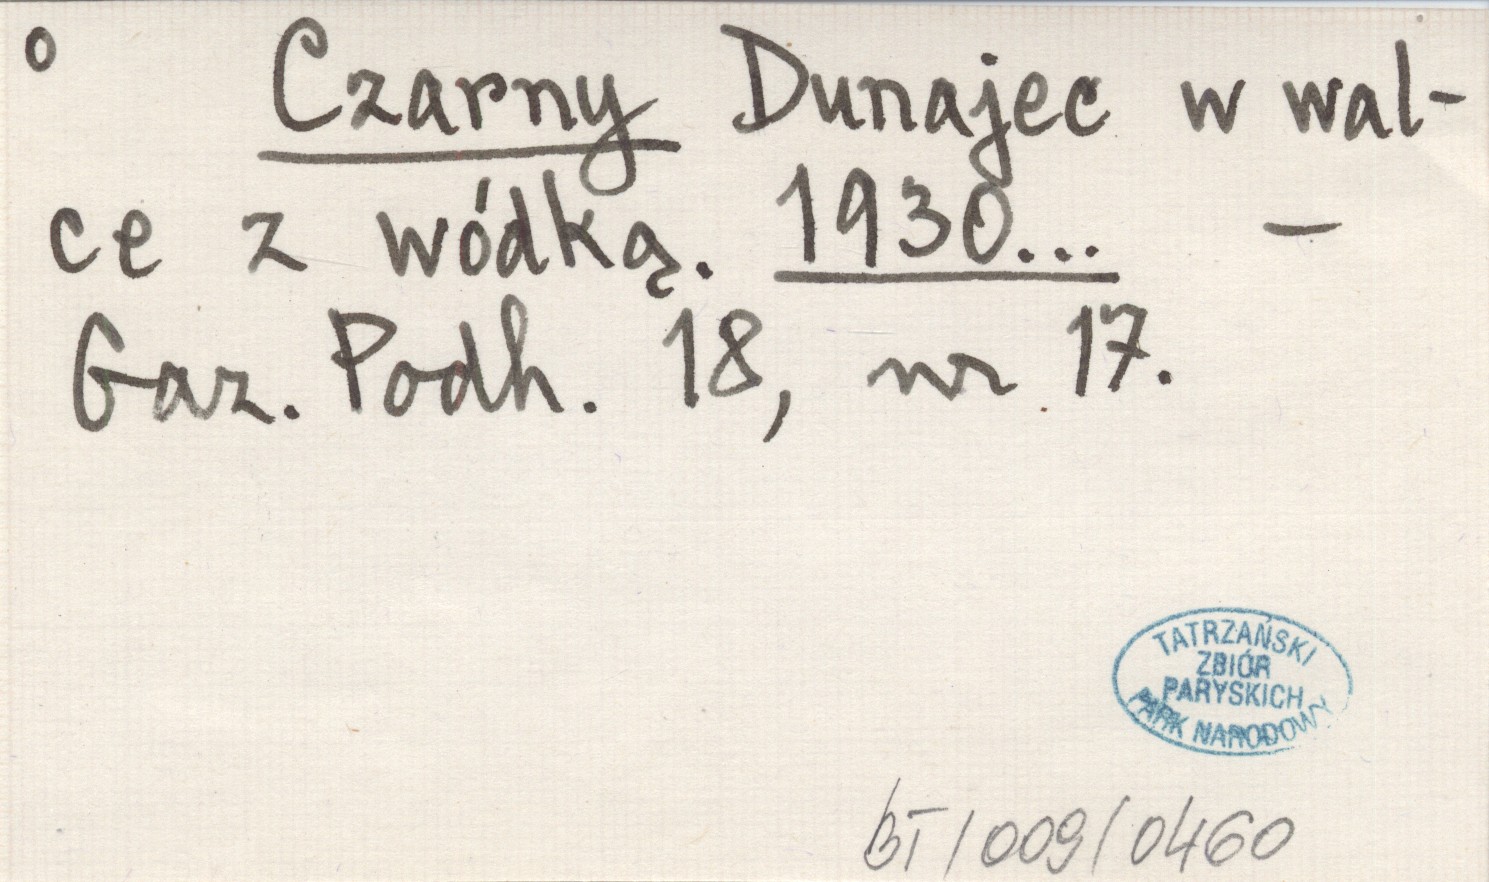 o Czarny Dunajec w wal-
ce z wódką. 1930... –
Gaz. Podh. 18, nr 17.
TATRZAŃSKI
ZBIÓR
PARYSKICH
PARK NARODOWY
BT/009/0460